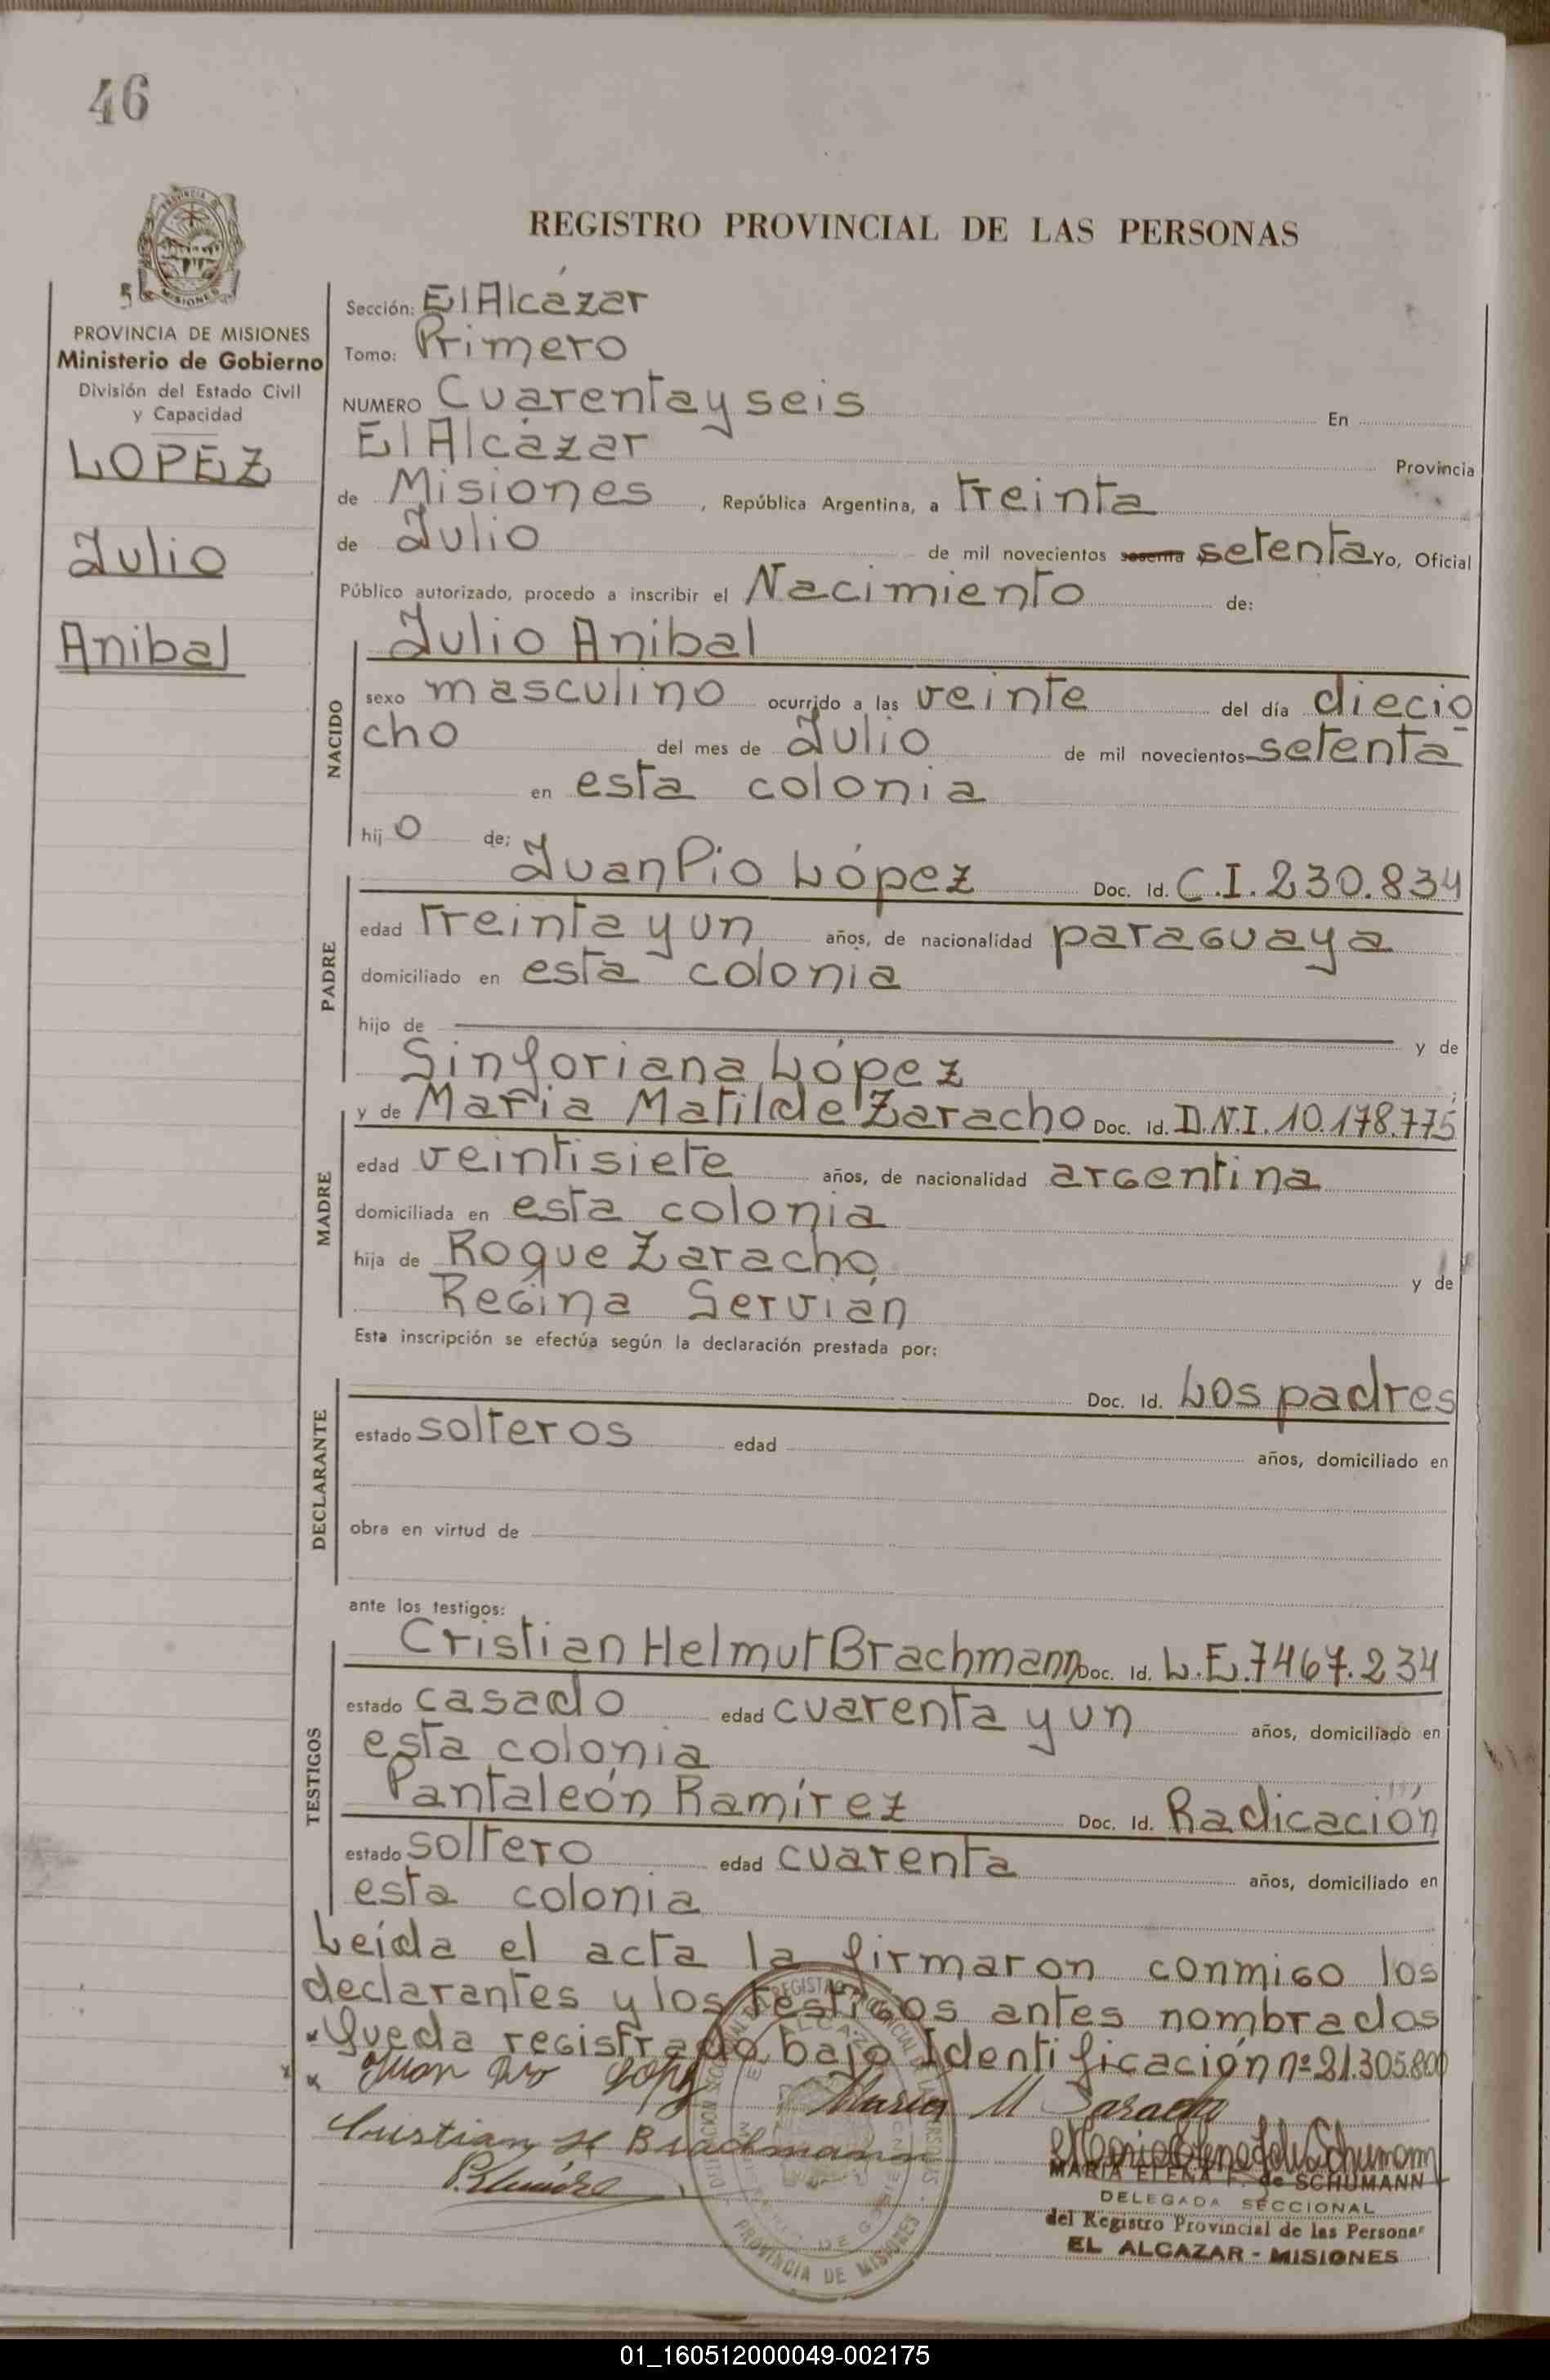 46
REGISTRO PROVINCIAL DE LAS PERSONAS
MISIONES
PROVINCIA DE MISIONES
Ministerio de Gobierno
División del Estado Civil
y Capacidad
LOPEZ
Julio
Anibal
Sección: El Alcázar
Tomo: Primero
NUMERO Cuarenta y seis En
El Alcázar Provincia
de Misiones, República Argentina, a treinta
de Julio de mil novecientos sesenta setenta Yo, Oficial
Público autorizado, procedo a inscribir el Nacimiento de:
Julio Anibal
NACIDO
sexo masculino ocurrido a las veinte del día diecio-
cho del mes de Julio de mil novecientos setenta
en esta colonia
hijo de:
Juan Pio López Doc. Id. C.I. 230.834
PADRE
edad treinta y un años, de nacionalidad paraguaya
domiciliado en esta colonia
hijo de y de
Sinforiana López
MADRE
y de María Matilde Zaracho Doc. Id. D.N.I. 10.178.775
edad veintisiete años, de nacionalidad argentina
domiciliada en esta colonia
hija de Roque Zaracho y de
Regina Servián
Esta inscripción se efectúa según la declaración prestada por:
DECLARANTE
Doc. Id. Los padres
estado solteros edad años, domiciliado en
obra en virtud de
ante los testigos:
TESTIGOS
Cristian Helmut Brachmann Doc. Id. L.E. 7467.234
estado casado edad cuarenta y un años, domiciliado en
esta colonia
Pantaleón Ramírez Doc. Id. Radicación
estado soltero edad cuarenta años, domiciliado en
esta colonia
Leída el acta la firmaron conmigo los
declarantes y los testigos antes nombrados
Queda registrado bajo Identificación nº 21.305.800
Juan Pio López
Maria M Saracho
Cristian H Brachmann
MARIA ELENA F. de SCHUMANN
DELEGADA SECCIONAL
del Registro Provincial de las Personas
EL ALCAZAR - MISIONES
PROVINCIA DE MISIONES
01_160512000049-002175